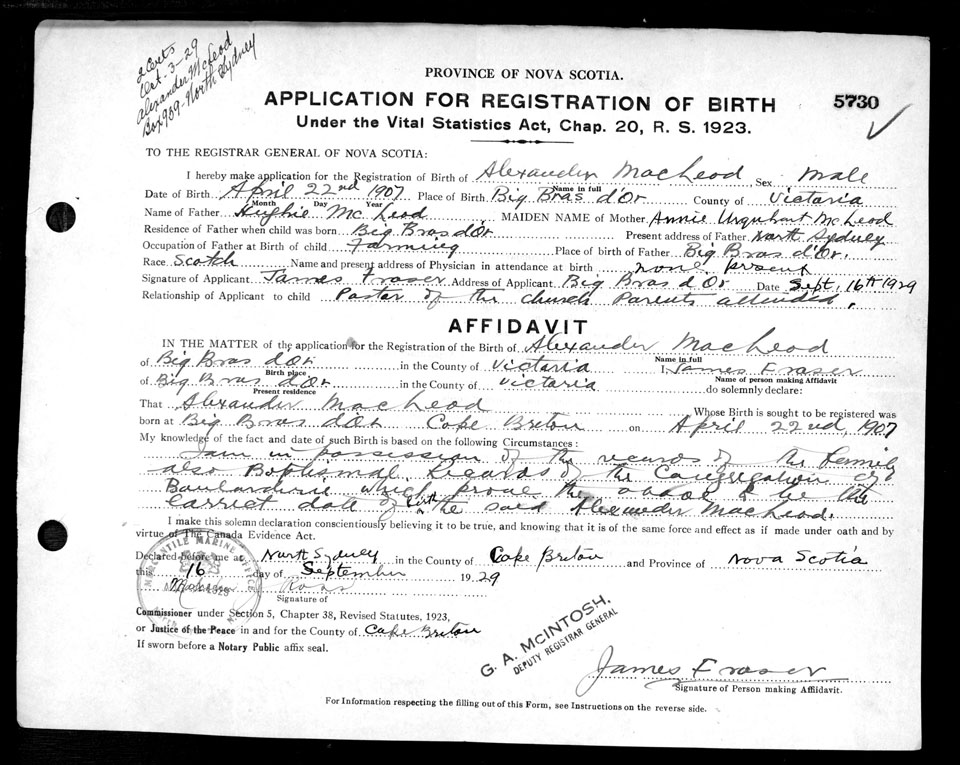 2 Certs
Oct. 3-29
Alexander McLeod
Box 939 - North Sydney
PROVINCE OF NOVA SCOTIA.
APPLICATION FOR REGISTRATION OF BIRTH
5730
Under the Vital Statistics Act, Chap. 20, R. S. 1923.
TO THE REGISTRAR GENERAL OF NOVA SCOTIA:
I hereby make application for the Registration of Birth of Alexander MacLeod Sex Male
Name in full
Date of Birth April 22nd 1907 Place of Birth Big Bras d'Or County of Victoria
Month Day Year
Name of Father Hughie McLeod MAIDEN NAME of Mother Annie Urquhart McLeod
Residence of Father when child was born Big Bras d'Or Present address of Father North Sydney
Occupation of Father at Birth of child Farming Place of birth of Father Big Bras d'Or.
Race Scotch Name and present address of Physician in attendance at birth none present
Signature of Applicant James Fraser Address of Applicant Big Bras d'Or Date Sept. 16th 1929
Relationship of Applicant to child Pastor of the church Parents attended.
AFFIDAVIT
IN THE MATTER of the application for the Registration of the Birth of Alexander MacLeod
Name in full
of Big Bras d'Or in the County of Victoria I, James Fraser
Birth place Name of person making Affidavit
of Big Bras d'Or in the County of Victoria do solemnly declare:
Present residence
That Alexander MacLeod Whose Birth is sought to be registered was
born at Big Bras d'Or Cape Breton on April 22nd, 1907
My knowledge of the fact and date of such Birth is based on the following Circumstances:
I am in possession of the records of the family
also Baptismal Records of the Congregation of
Boularderie which prove the above to be the
correct date of birth of the said Alexander MacLeod.
I make this solemn declaration conscientiously believing it to be true, and knowing that it is of the same force and effect as if made under oath and by
virtue of The Canada Evidence Act.
Declared before me at North Sydney in the County of Cape Breton and Province of Nova Scotia
this 16 day of September 1929
MERCANTILE MARINE OFFICE
Ross
Signature of
Commissioner under Section 5, Chapter 38, Revised Statutes, 1923,
or Justice of the Peace in and for the County of Cape Breton
If sworn before a Notary Public affix seal.
G. A. McINTOSH.
DEPUTY REGISTRAR GENERAL
James Fraser
Signature of Person making Affidavit.
For Information respecting the filling out of this Form, see Instructions on the reverse side.